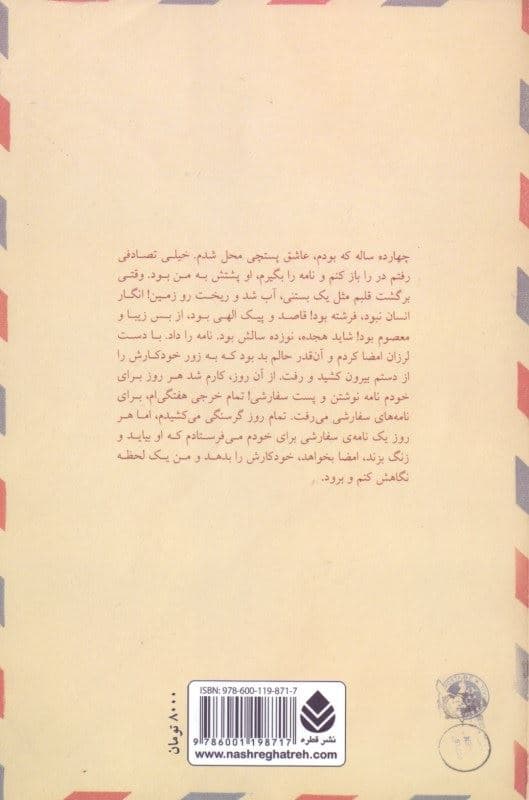 چهارده ساله که بودم، عاشق پستچی محل شدم. خیلی تصادفی
رفتم در را باز کنم و نامه را بگیرم، او پشتش به من بود. وقتی
برگشت قلبم مثل یک بستنی، آب شد و ریخت رو زمین! انگار
انسان نبود، فرشته بود! قاصد و پیک الهی بود، از بس زیبا و
معصوم بود! شاید هجده، نوزده سالش بود. نامه را داد. با دست
لرزان امضا کردم و آن‌قدر حالم بد بود که به زور خودکارش را
از دستم بیرون کشید و رفت. از آن روز، کارم شد هر روز برای
خودم نامه نوشتن و پست سفارشی! تمام خرجی هفتگی‌ام، برای
نامه‌های سفارشی می‌رفت. تمام روز گرسنگی می‌کشیدم، اما هر
روز یک نامه‌ی سفارشی برای خودم می‌فرستادم که او بیاید و
زنگ بزند، امضا بخواهد، خودکارش را بدهد و من یک لحظه
نگاهش کنم و برود.
۸۰۰۰ تومان
ISBN: 978-600-119-871-7
9 786001 198717
نشر قطره
www.nashreghatreh.com